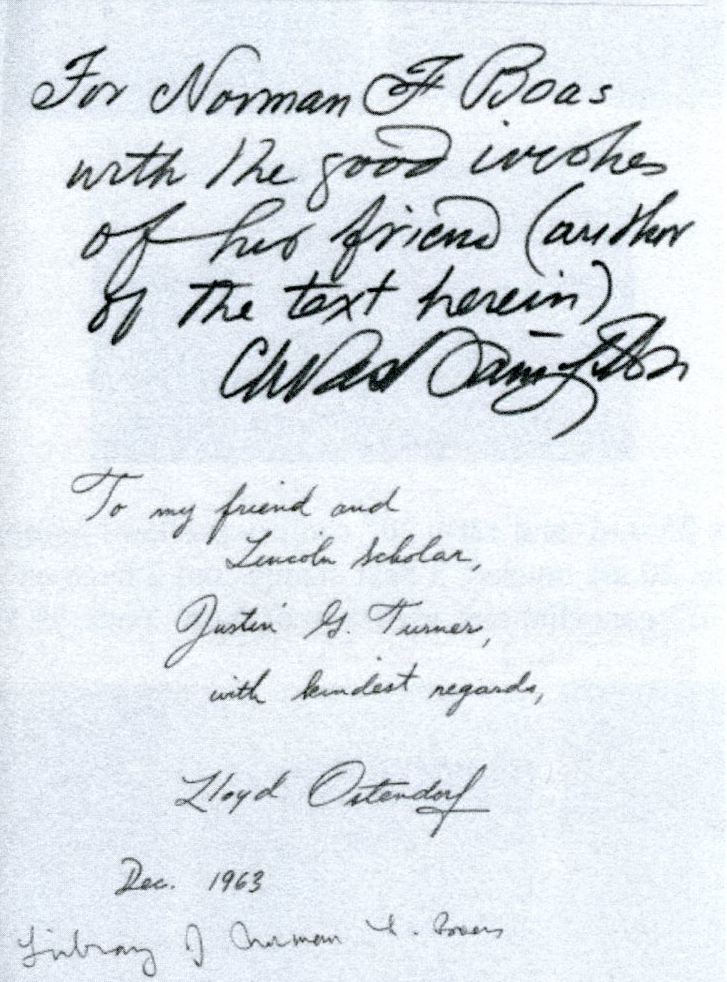 For Norman F Boas
with the good wishes
of his friend (author
of the text herein)
Charles Hamilton
To my friend and
Lincoln scholar,
Justin G. Turner,
with kindest regards,
Lloyd Ostendorf
Dec. 1963
Library of Norman F. Boas